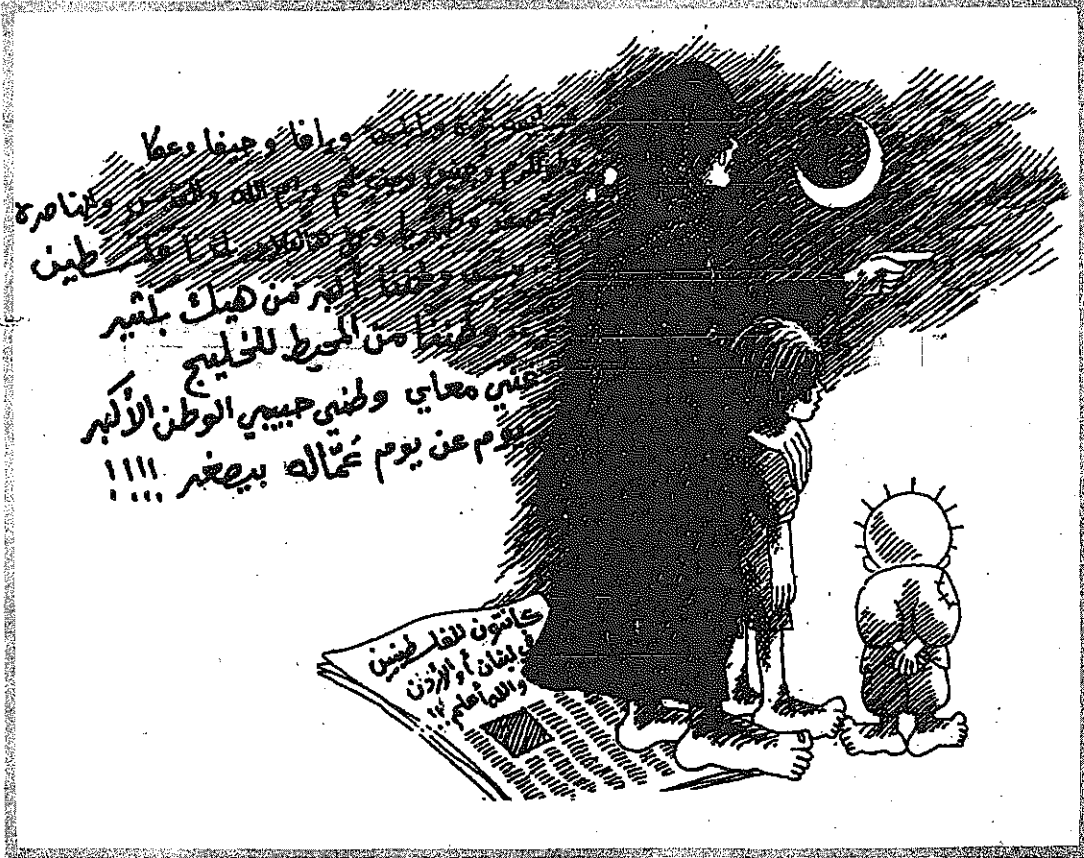 غزة ويافا وحيفا وعكا
وجنين ورام الله والقدس والناصرة
وصفد وطبريا وكل هالبلاد بلدنا فلسطين
وطننا أكبر من هيك بكثير
وطننا من المحيط للخليج
غنّي معاي وطني حبيبي الوطن الأكبر
يوم عن يوم عمّاله بيصغر !!!!
كانتون للفلسطينيين
في لبنان أو الأردن
والله أعلم !!